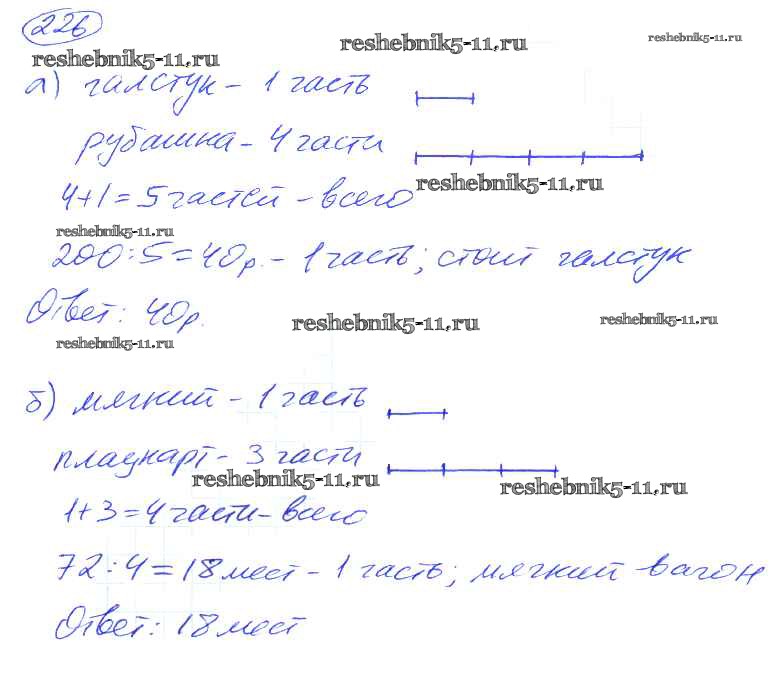 226
reshebnik5-11.ru
reshebnik5-11.ru
reshebnik5-11.ru
а) галстук - 1 часть
рубашка - 4 части
reshebnik5-11.ru
4+1=5 частей - всего
reshebnik5-11.ru
200:5=40р. - 1 часть; стоит галстук
Ответ: 40р.
reshebnik5-11.ru
reshebnik5-11.ru
reshebnik5-11.ru
б) мягкий - 1 часть
плацкарт - 3 части
reshebnik5-11.ru
reshebnik5-11.ru
1+3=4 части - всего
72:4=18 мест - 1 часть; мягкий вагон
Ответ: 18 мест